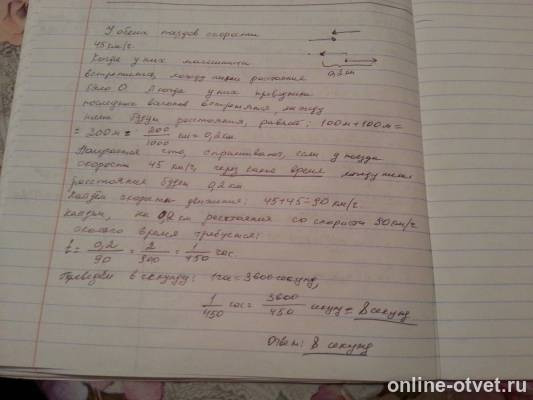 У обеих поездов скорости
45 км/г.
Когда у них машинисты
встретятся, между ними растояния
0,2 км
было 0. А когда у них
последних вагонов встретятся, между
ними будет растояния, равной: 100м+100м=
= 200м = 200/1000 км = 0,2 км
что, спрашивают, если у поезда
скорость 45 км/г, через какое время между ними
расстояния будет 0,2 км
Найдём скорость движения: 45+45=90 км/г.
Найдем, на 0,2 км расстояния со скорости 90 км/г
сколько время требуется:
t = 0,2/90 = 2/900 = 1/450 час.
Приведём в секунду: 1час = 3600 секунд,
1/450 час = 3600/450 секунд = 8 секунд
Ответ: 8 секунд
online-otvet.ru